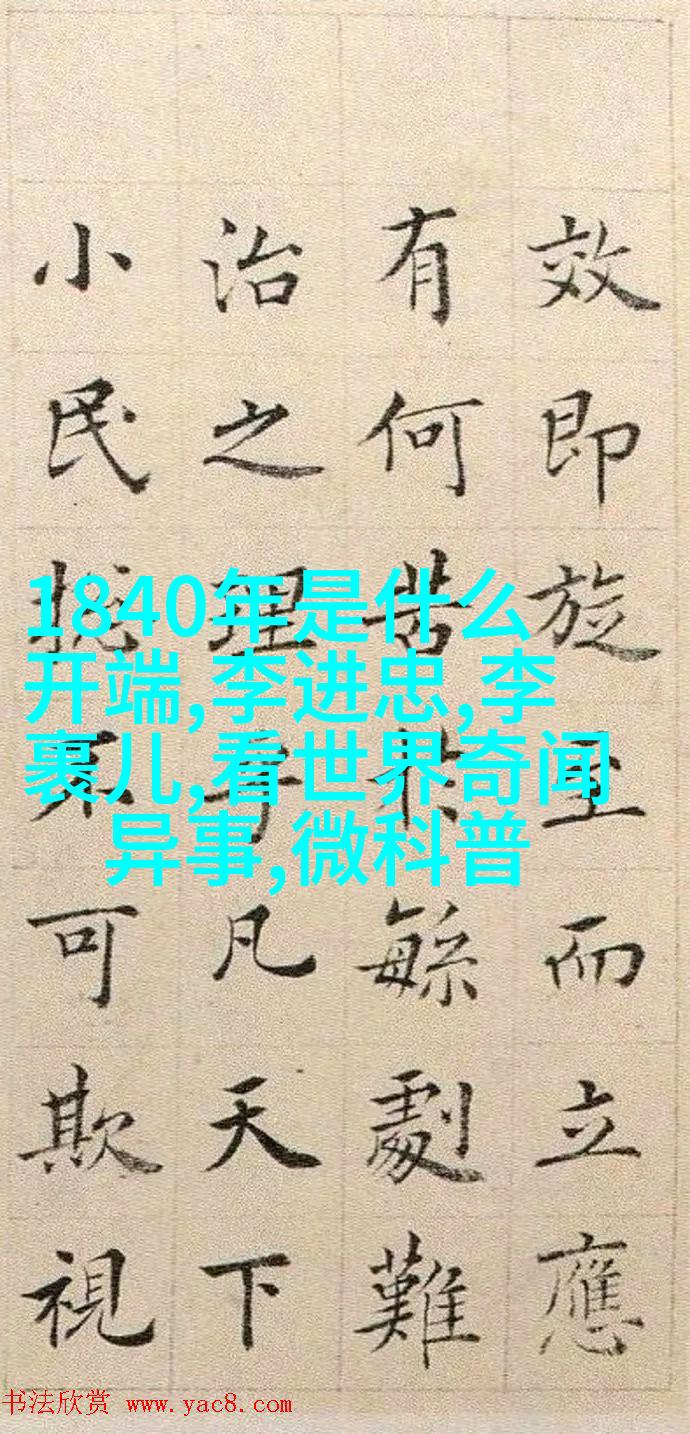 效即旋至而立應
有何苦於緐劇難
治之理乎凡天下
小民不可欺視
1840年是什么
开端,李进忠,李
裹儿,看世界奇闻
异事,微科普
书法欣赏 www.yac8.com